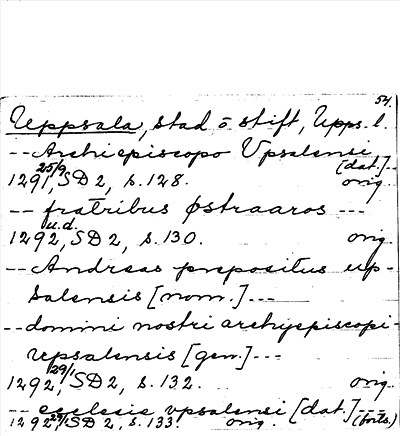 54.
Uppsala, stad o stift, Upps. l.
-- Archiepiscopo Upsalensi [dat.]--
25/9 1291, SD 2, s. 128. orig.
-- fratribus østraaros ---
u.d. 1292, SD 2, s. 130. orig.
-- Andreas prepositus up-
salensis [nom.] ---
-- domini nostri archyepiscopi
vpsalensis [gen.] ---
29/1 1292, SD 2, s. 132. orig.
-- ecclesie vpsalensi [dat.] ---
1292, SD 2, s. 133. orig. (forts.)